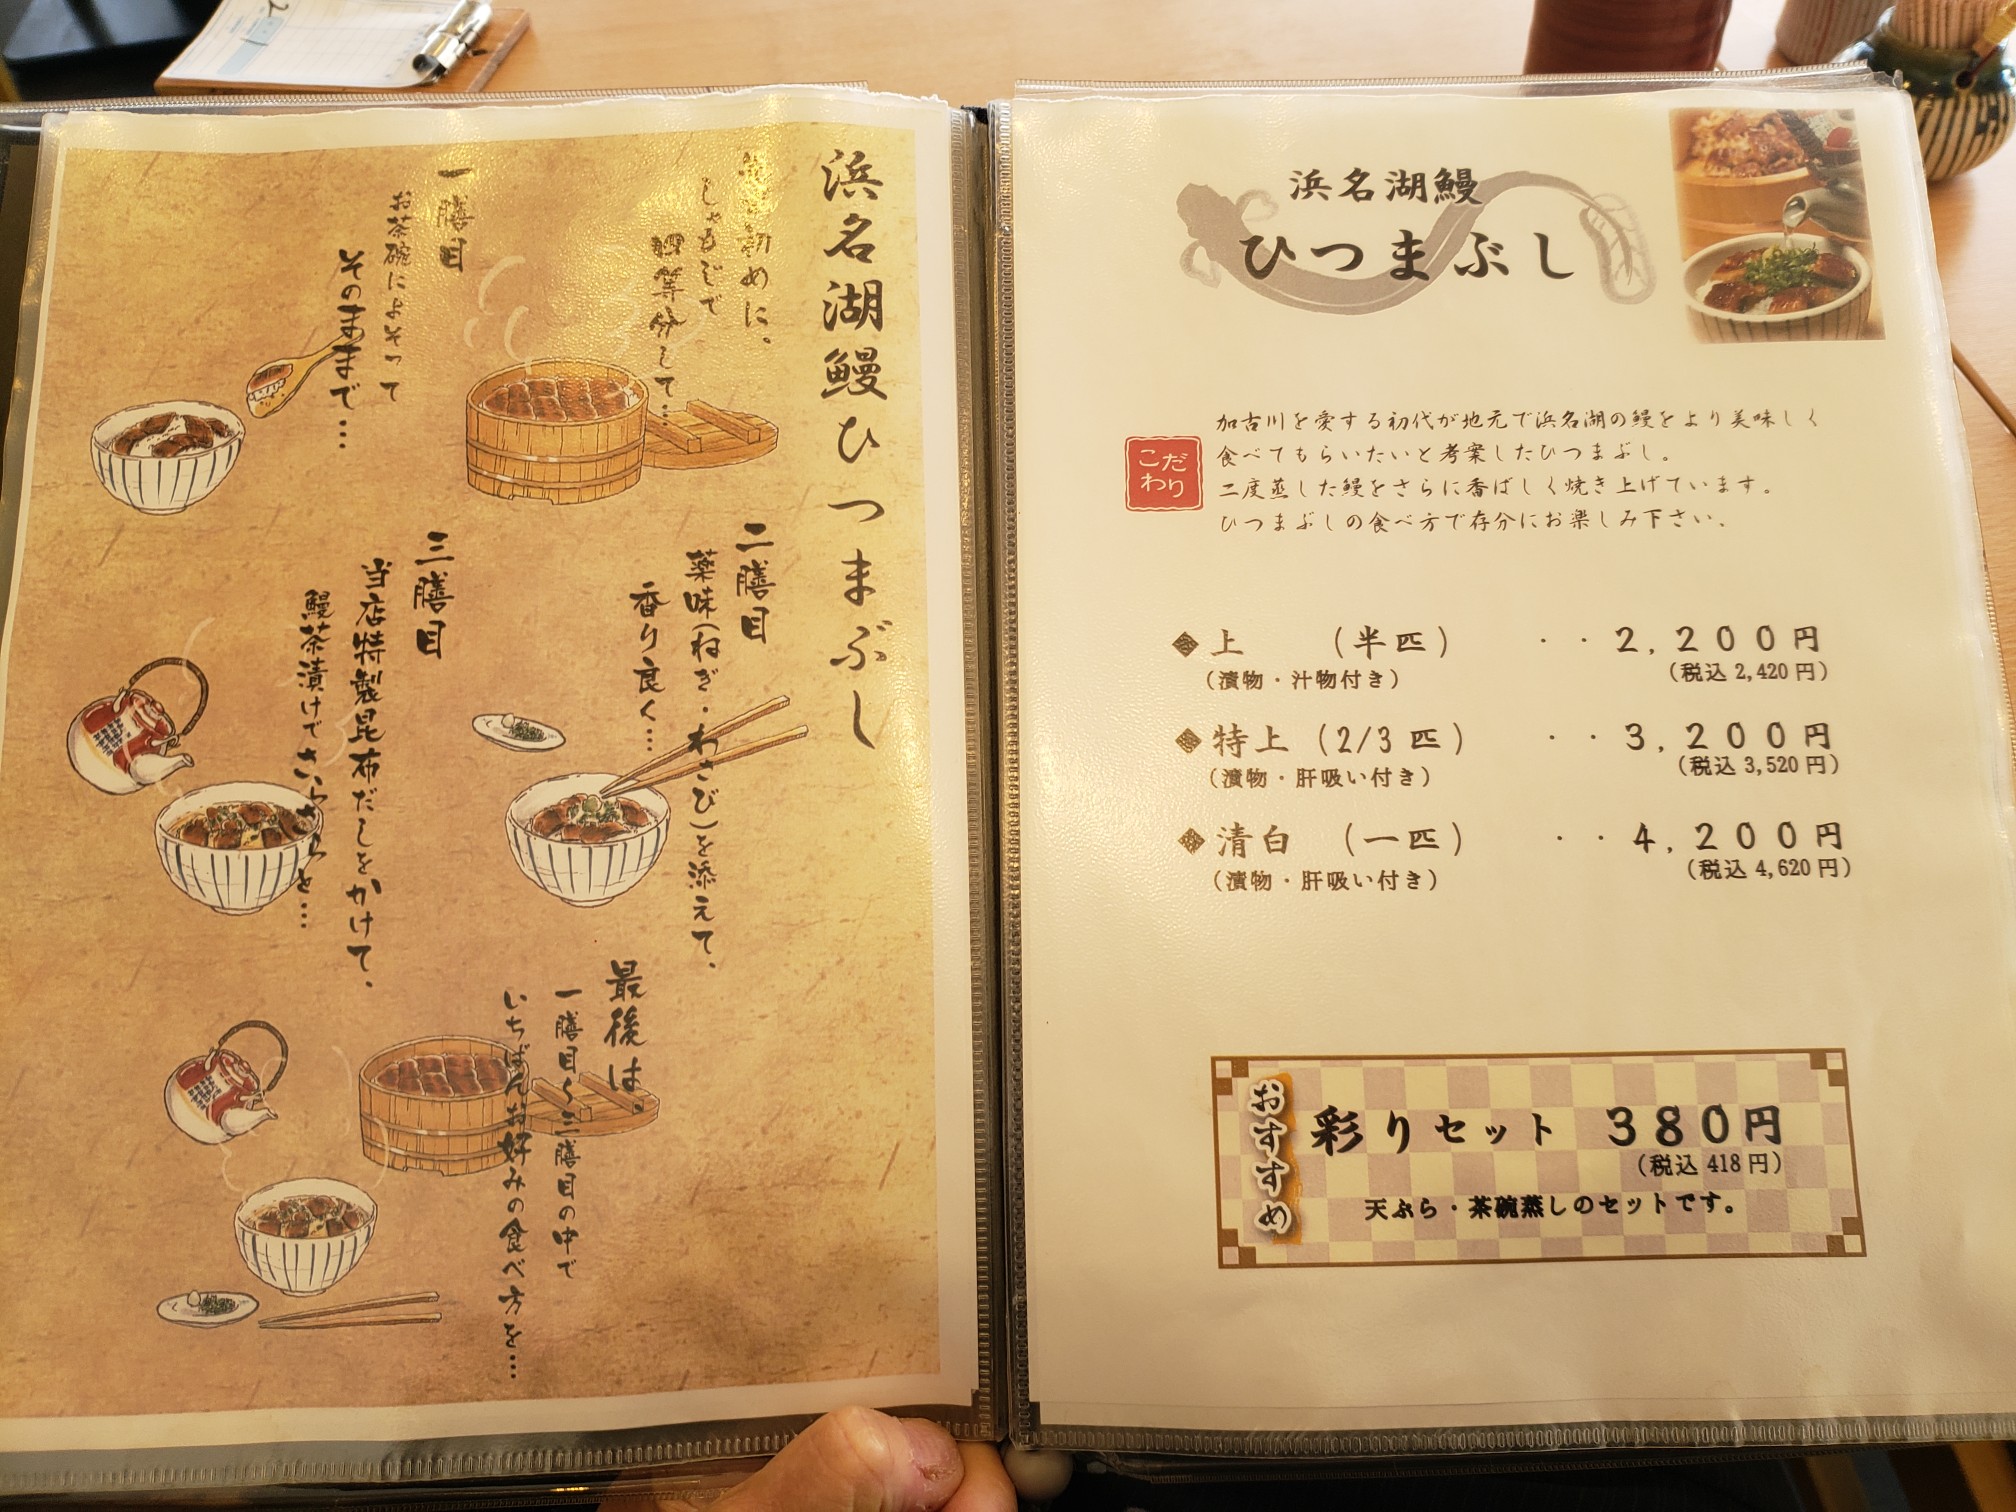 浜名湖鰻ひつまぶし
初めに、
しゃもじで
四等分して…
一膳目
お茶碗によそって
そのままで…
二膳目
薬味(ねぎ・わさび)を添えて、
香り良く…
三膳目
当店特製昆布だしをかけて、
鰻茶漬けでさらさらと…
最後は、
一膳目〜三膳目の中で
いちばんお好みの食べ方を…
浜名湖鰻
ひつまぶし
こだわり
加古川を愛する初代が地元で浜名湖の鰻をより美味しく
食べてもらいたいと考案したひつまぶし。
二度蒸した鰻をさらに香ばしく焼き上げています。
ひつまぶしの食べ方で存分にお楽しみ下さい、
◆上 (半匹) ・・2,200円
(漬物・汁物付き) (税込2,420円)
◆特上(2/3匹) ・・3,200円
(漬物・肝吸い付き) (税込3,520円)
◆清白 (一匹) ・・4,200円
(漬物・肝吸い付き) (税込4,620円)
おすすめ
彩りセット 380円
(税込418円)
天ぷら・茶碗蒸しのセットです。